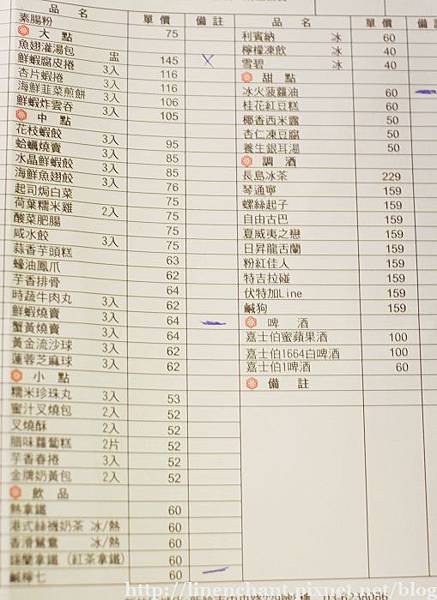 品 名 單價 備註
素腸粉 75
大 點
魚翅灌湯包 盅 145
鮮蝦腐皮捲 3入 116
杏片蝦捲 3入 116
海鮮韭菜煎餅 3入 106
鮮蝦炸雲吞 3入 105
中 點
花枝蝦餃 3入 95
蛤蠣燒賣 3入 85
水晶鮮蝦餃 3入 85
海鮮魚翅餃 3入 76
起司焗白菜 75
荷葉糯米雞 2入 75
酸菜肥腸 75
咸水餃 3入 75
蒜香芋頭糕 63
蠔油鳳爪 62
芋香排骨 64
時蔬牛肉丸 3入 62
鮮蝦燒賣 3入 64
蟹黃燒賣 3入 64
黃金流沙球 3入 62
蓮蓉芝麻球 3入 62
小 點
糯米珍珠丸 3入 53
蜜汁叉燒包 2入 52
叉燒酥 2入 52
腊味蘿蔔糕 2片 52
芋香春捲 3入 52
金牌奶黃包 2入 52
飲 品
熱拿鐵 60
港式絲襪奶茶 冰/熱 60
香滑鴛鴦 冰/熱 60
錫蘭拿鐵 (紅茶拿鐵) 60
鹹檸七 60
品 名 單價 備註
利賓納 冰 60
檸檬凍飲 冰 40
雪碧 冰 40
甜 點
冰火菠蘿油 60
桂花紅豆糕 60
椰香西米露 50
杏仁凍豆腐 50
養生銀耳湯 50
調 酒
長島冰茶 229
琴通寧 159
螺絲起子 159
自由古巴 159
夏威夷之戀 159
日昇龍舌蘭 159
粉紅佳人 159
特吉拉碰 159
伏特加Line 159
鹹狗 159
啤 酒
嘉士伯蜜蘋果酒 100
嘉士伯1664白啤酒 100
嘉士伯1啤酒 60
備 註
http://linenchant.pixnet.net/blog